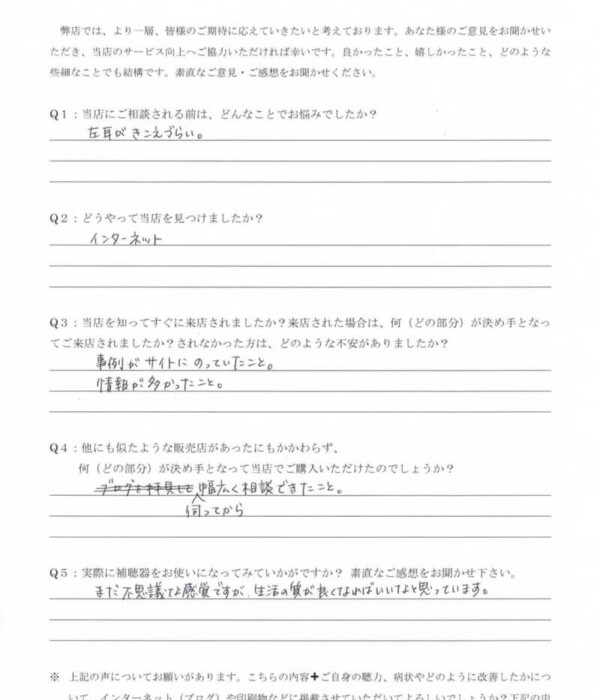 弊店では、より一層、皆様のご期待に応えていきたいと考えております。あなた様のご意見をお聞かせい
ただき、当店のサービス向上へご協力いただければ幸いです。良かったこと、嬉しかったこと、どのような
些細なことでも結構です。素直なご意見・ご感想をお聞かせください。
Q1：当店にご相談される前は、どんなことでお悩みでしたか？
左耳がきこえづらい。
Q2：どうやって当店を見つけましたか？
インターネット
Q3：当店を知ってすぐに来店されましたか？来店された場合は、何（どの部分）が決め手となっ
てご来店されましたか？されなかった方は、どのような不安がありましたか？
事例がサイトにのっていたこと。
情報が多かったこと。
Q4：他にも似たような販売店があったにもかかわらず、
何（どの部分）が決め手となって当店でご購入いただけたのでしょうか？
ブログを拝見して 幅広く相談できたこと。
伺ってから
Q5：実際に補聴器をお使いになってみていかがですか？ 素直なご感想をお聞かせ下さい。
まだ不思議な感覚ですが、生活の質が良くなればいいなと思っています。
※ 上記の声についてお願いがあります。こちらの内容＋ご自身の聴力、病状やどのように改善したかにつ
いて、インターネット（ブログ）や印刷物などに掲載させていただいてよろしいでしょうか？下記の中